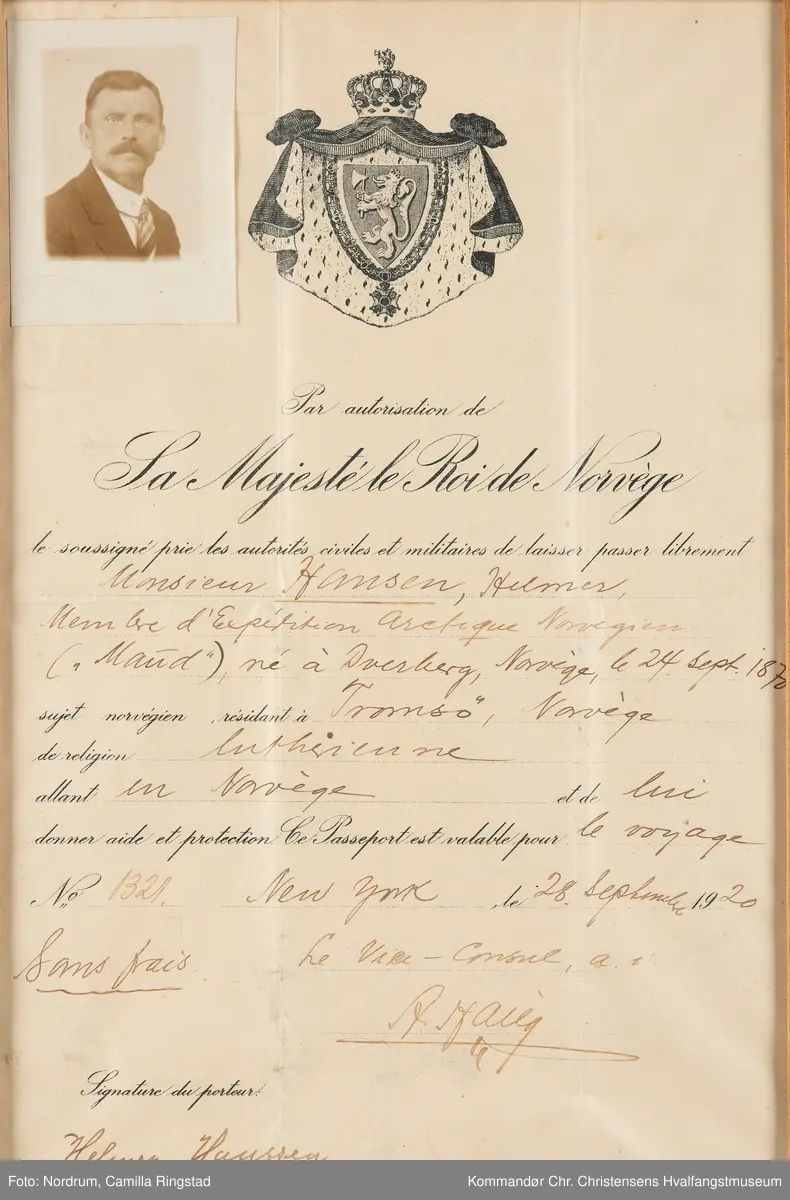 Par autorisation de
Sa Majesté le Roi de Norvège
le soussigné prie les autorités civiles et militaires de laisser passer librement
Monsieur Hansen, Helmer,
Membre d'Expédition Arctique Norvegien
(„Maud“), né à Dverberg, Norvège, le 24. Sept. 1870
sujet norvégien, résidant à Tromsö, Norvège
de religion luthérienne
allant en Norvège et de lui
donner aide et protection. Ce Passeport est valable pour le voyage
No 1321. New York, le 28. Septembre 1920
Sans frais Le Vice-Consul, a. i.
A. Haug
Signature du porteur:
Helmer Hanssen
Foto: Nordrum, Camilla Ringstad Kommandør Chr. Christensens Hvalfangstmuseum